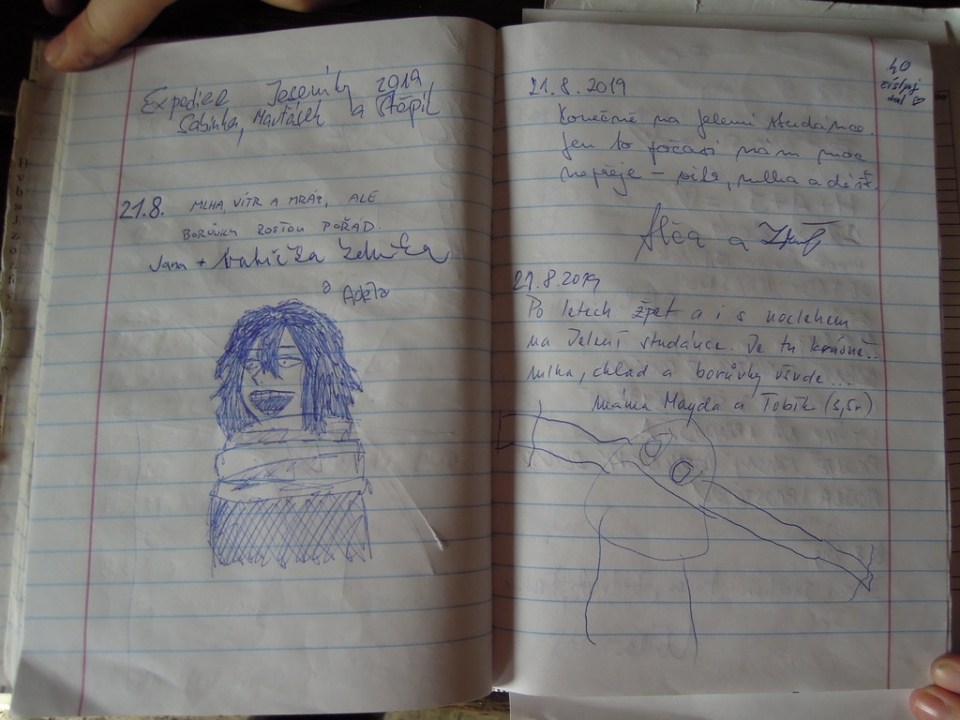 Expedice Jeseníky 2019
Sabinka, Maťásek a Štěpil
21.8. MLHA, VÍTR A MRÁZ, ALE
BORŮVKY ROSTOU POŘÁD.
Jana + babička Zdeňka
Adéla
21.8.2019
Konečně na Jelení studánce.
Jen to počasí nám moc
nepřeje – mlha a déšť.
Alča a
21.8.2019
Po letech zpět a i s noclehem
na Jelení studánce. Je tu krásně..
mlha, chlad a borůvky všude...
máma Magda a Tobík (3,5r)